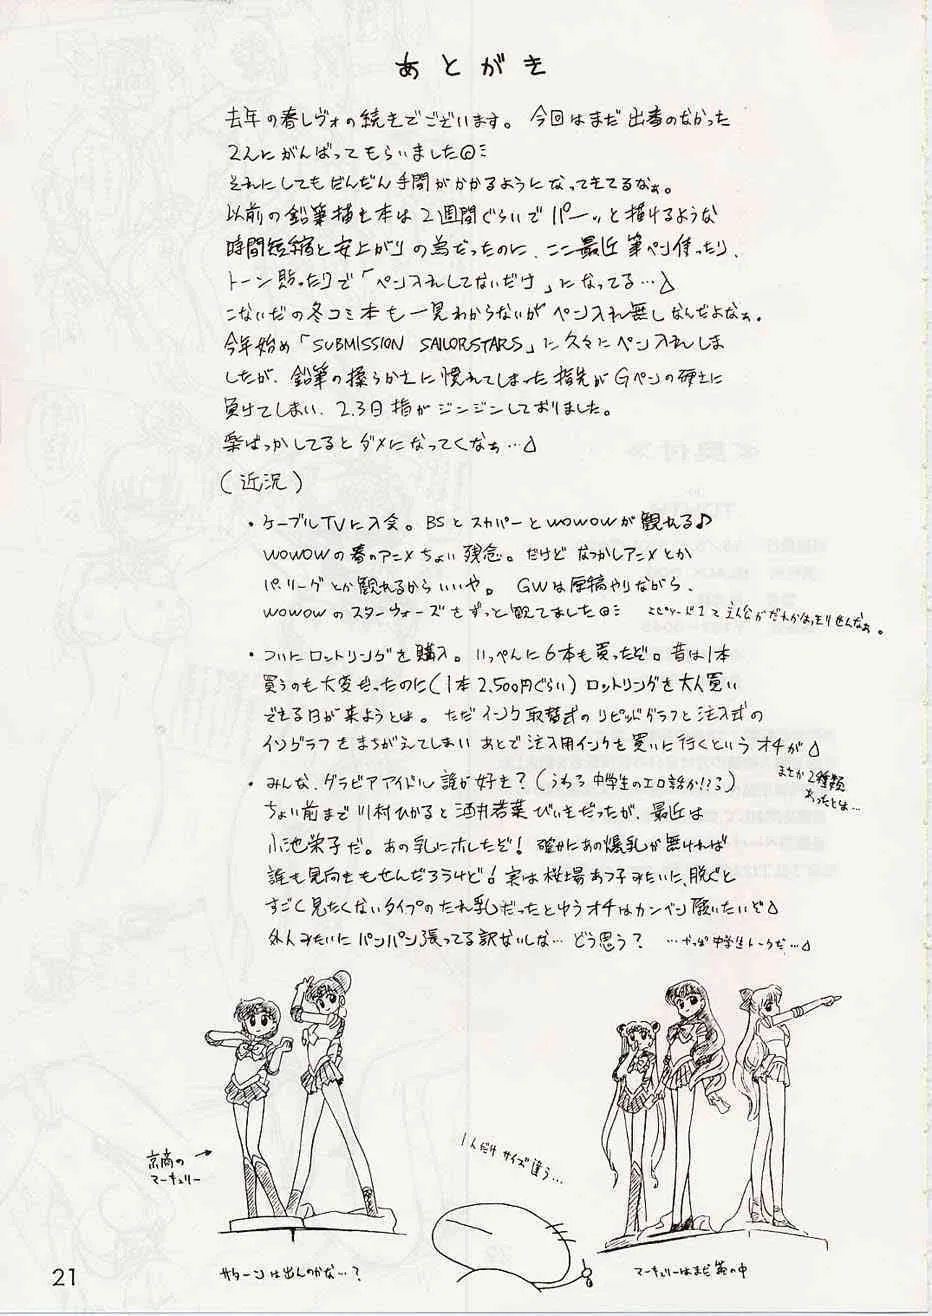 あとがき
去年の春レヴォの続きでございます。今回はまだ出番のなかった
2人にがんばってもらいました
それにしてもだんだん手間がかかるようになってきてるなぁ。
以前の鉛筆描き本は2週間ぐらいでパーッと描けるような
時間短縮と安上がりの為だったのに、ここ最近筆ペン使ったり、
トーン貼ったりで「ペン入れしてないだけ」になってる…
こないだの冬コミ本も一見わからないがペン入れ無しなんだよなぁ。
今年始め「SUBMISSION SAILORSTARS」に久々にペン入れしま
したが、鉛筆の柔らかさに慣れてしまった指先がGペンの硬さに
負けてしまい、2.3日指がジンジンしておりました。
楽ばっかしてるとダメになってくなぁ…
(近況)
・ケーブルTVに入会。BSとスカパーとWOWOWが観れる♪
WOWOWの春のアニメちょい残念。だけどなつかしアニメとか
パ・リーグとか観れるからいいや。GWは原稿やりながら、
WOWOWのスターウォーズをずっと観てました
エピソード1って主人公がだれかはっきりせんなぁ。
・ついにロットリングを購入。いっぺんに6本も買ったぞ。昔は1本
買うのも大変だったのに(1本2,500円ぐらい)ロットリングを大人買い
できる日が来ようとは。ただインク取替式のラピッドグラフと注入式の
イソグラフをまちがえてしまいあとで注入用インクを買いに行くというオチが
まさか2種類
あったとは…
・みんな、グラビアアイドル誰が好き?(うわっ中学生のエロ話か!?)
ちょい前まで川村ひかると酒井若菜びいきだったが、最近は
小池栄子だ。あの乳にホレたぞ!確かにあの爆乳が無ければ
誰も見向きもせんだろうけど!実は桜場あつ子みたいに、脱ぐと
すごく見たくないタイプのたれ乳だったとゆうオチはカンベン願いたいぞ
外人みたいにパンパン張ってる訳ないしな…どう思う?…やっぱ中学生トークだ…
京商の
マーキュリー
→
1人だけサイズ違う…
サターンは出んのかな…?
マーキュリーはまだ箱の中
21